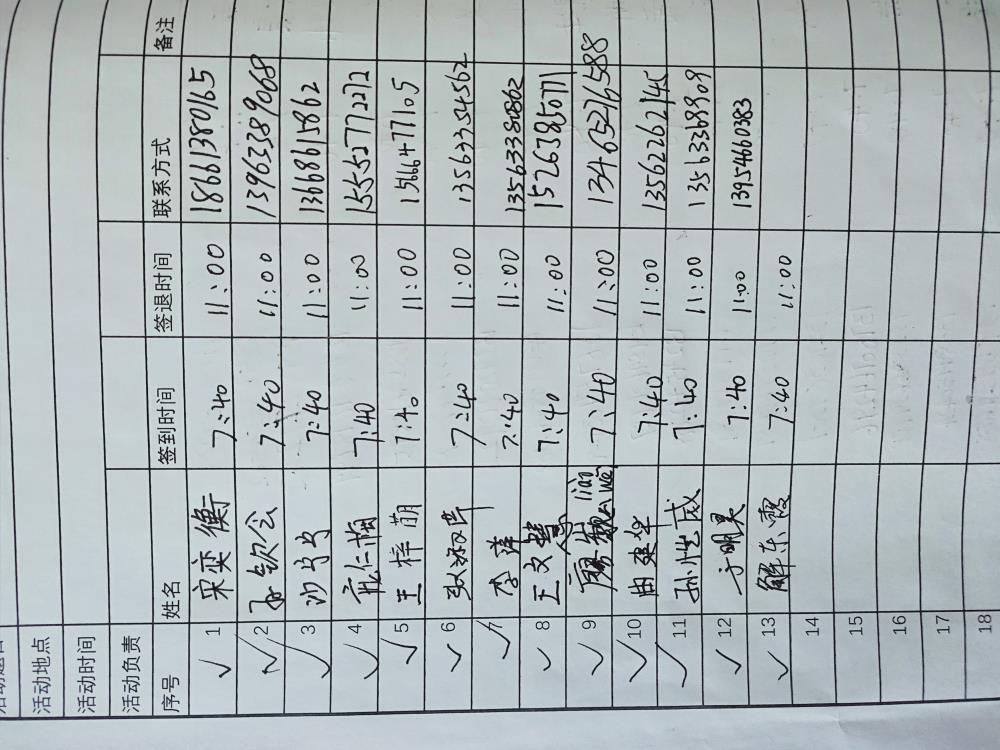 活动地点
活动时间
活动负责
序号 姓名 签到时间 签退时间 联系方式 备注
1 宋奕衡 7:40 11:00 18661380165
2 孙钦会 7:40 11:00 13963389068
3 沙安安 7:40 11:00 13668615862
4 7:40 11:00 15552772272
5 王梓萌 7:40 11:00 15666477105
6 7:40 11:00 13563354562
7 李萍 7:40 11:00 13563380862
8 王文慧 7:40 11:00 15263850711
9 廖 liào 7:40 11:00 13465276588
10 7:40 11:00 13562262145
11 孙 7:40 11:00 13563368909
12 于明昊 7:40 11:00 13954660383
13 解东霞 7:40 11:00
14
15
16
17
18